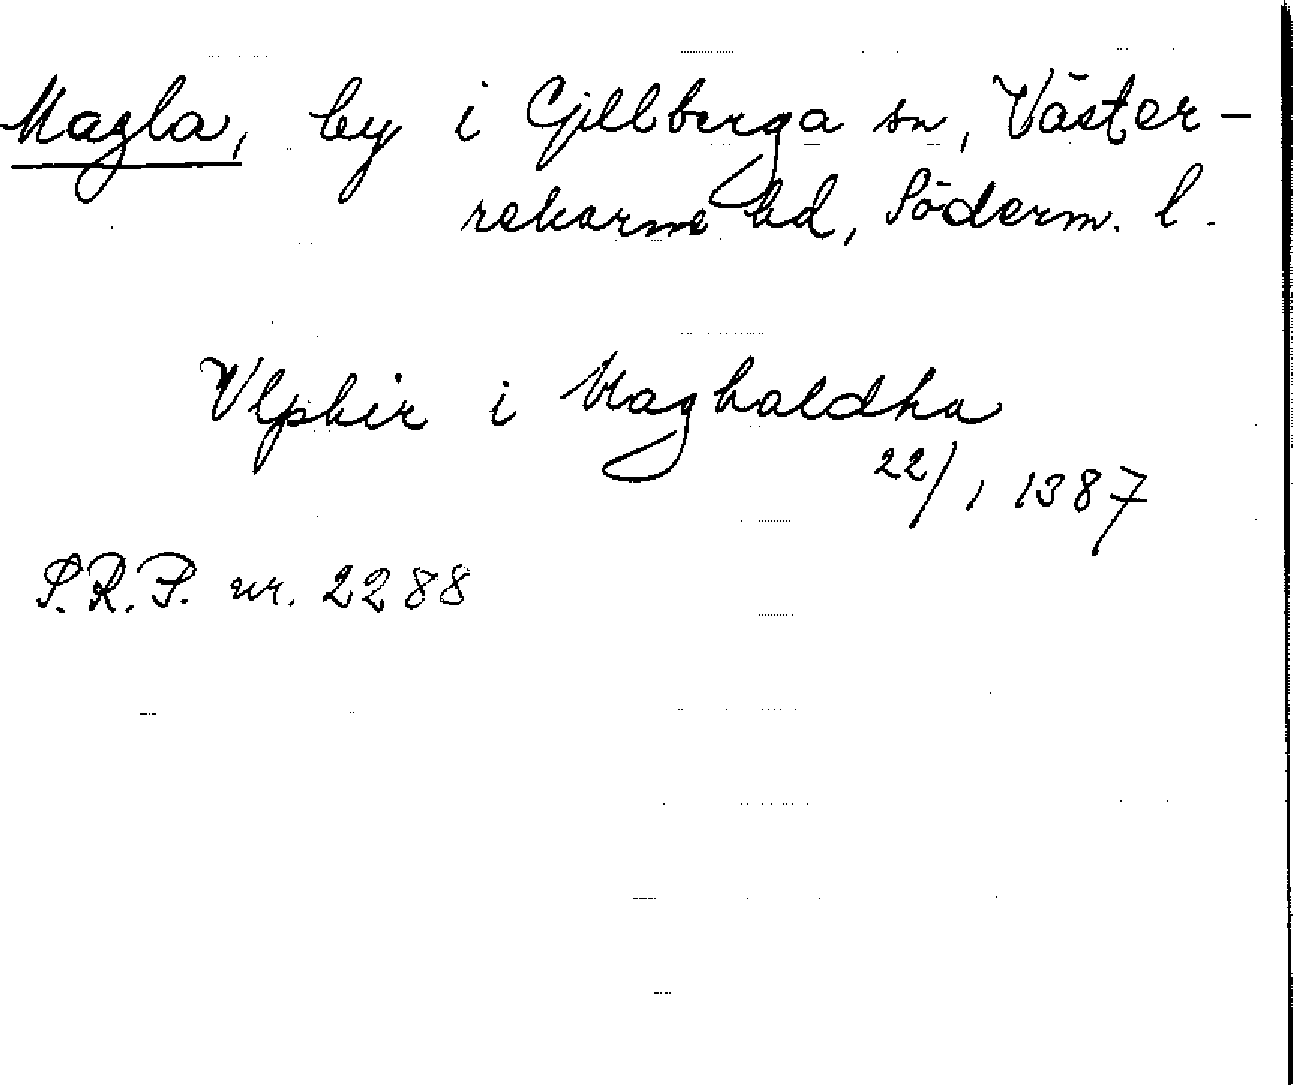 Magla, by i Gillberga sn, Väster-
rekarne hd, Söderm. l.
Vlphir i Maghaldha
22/1 1387
S.R.P. nr. 2288